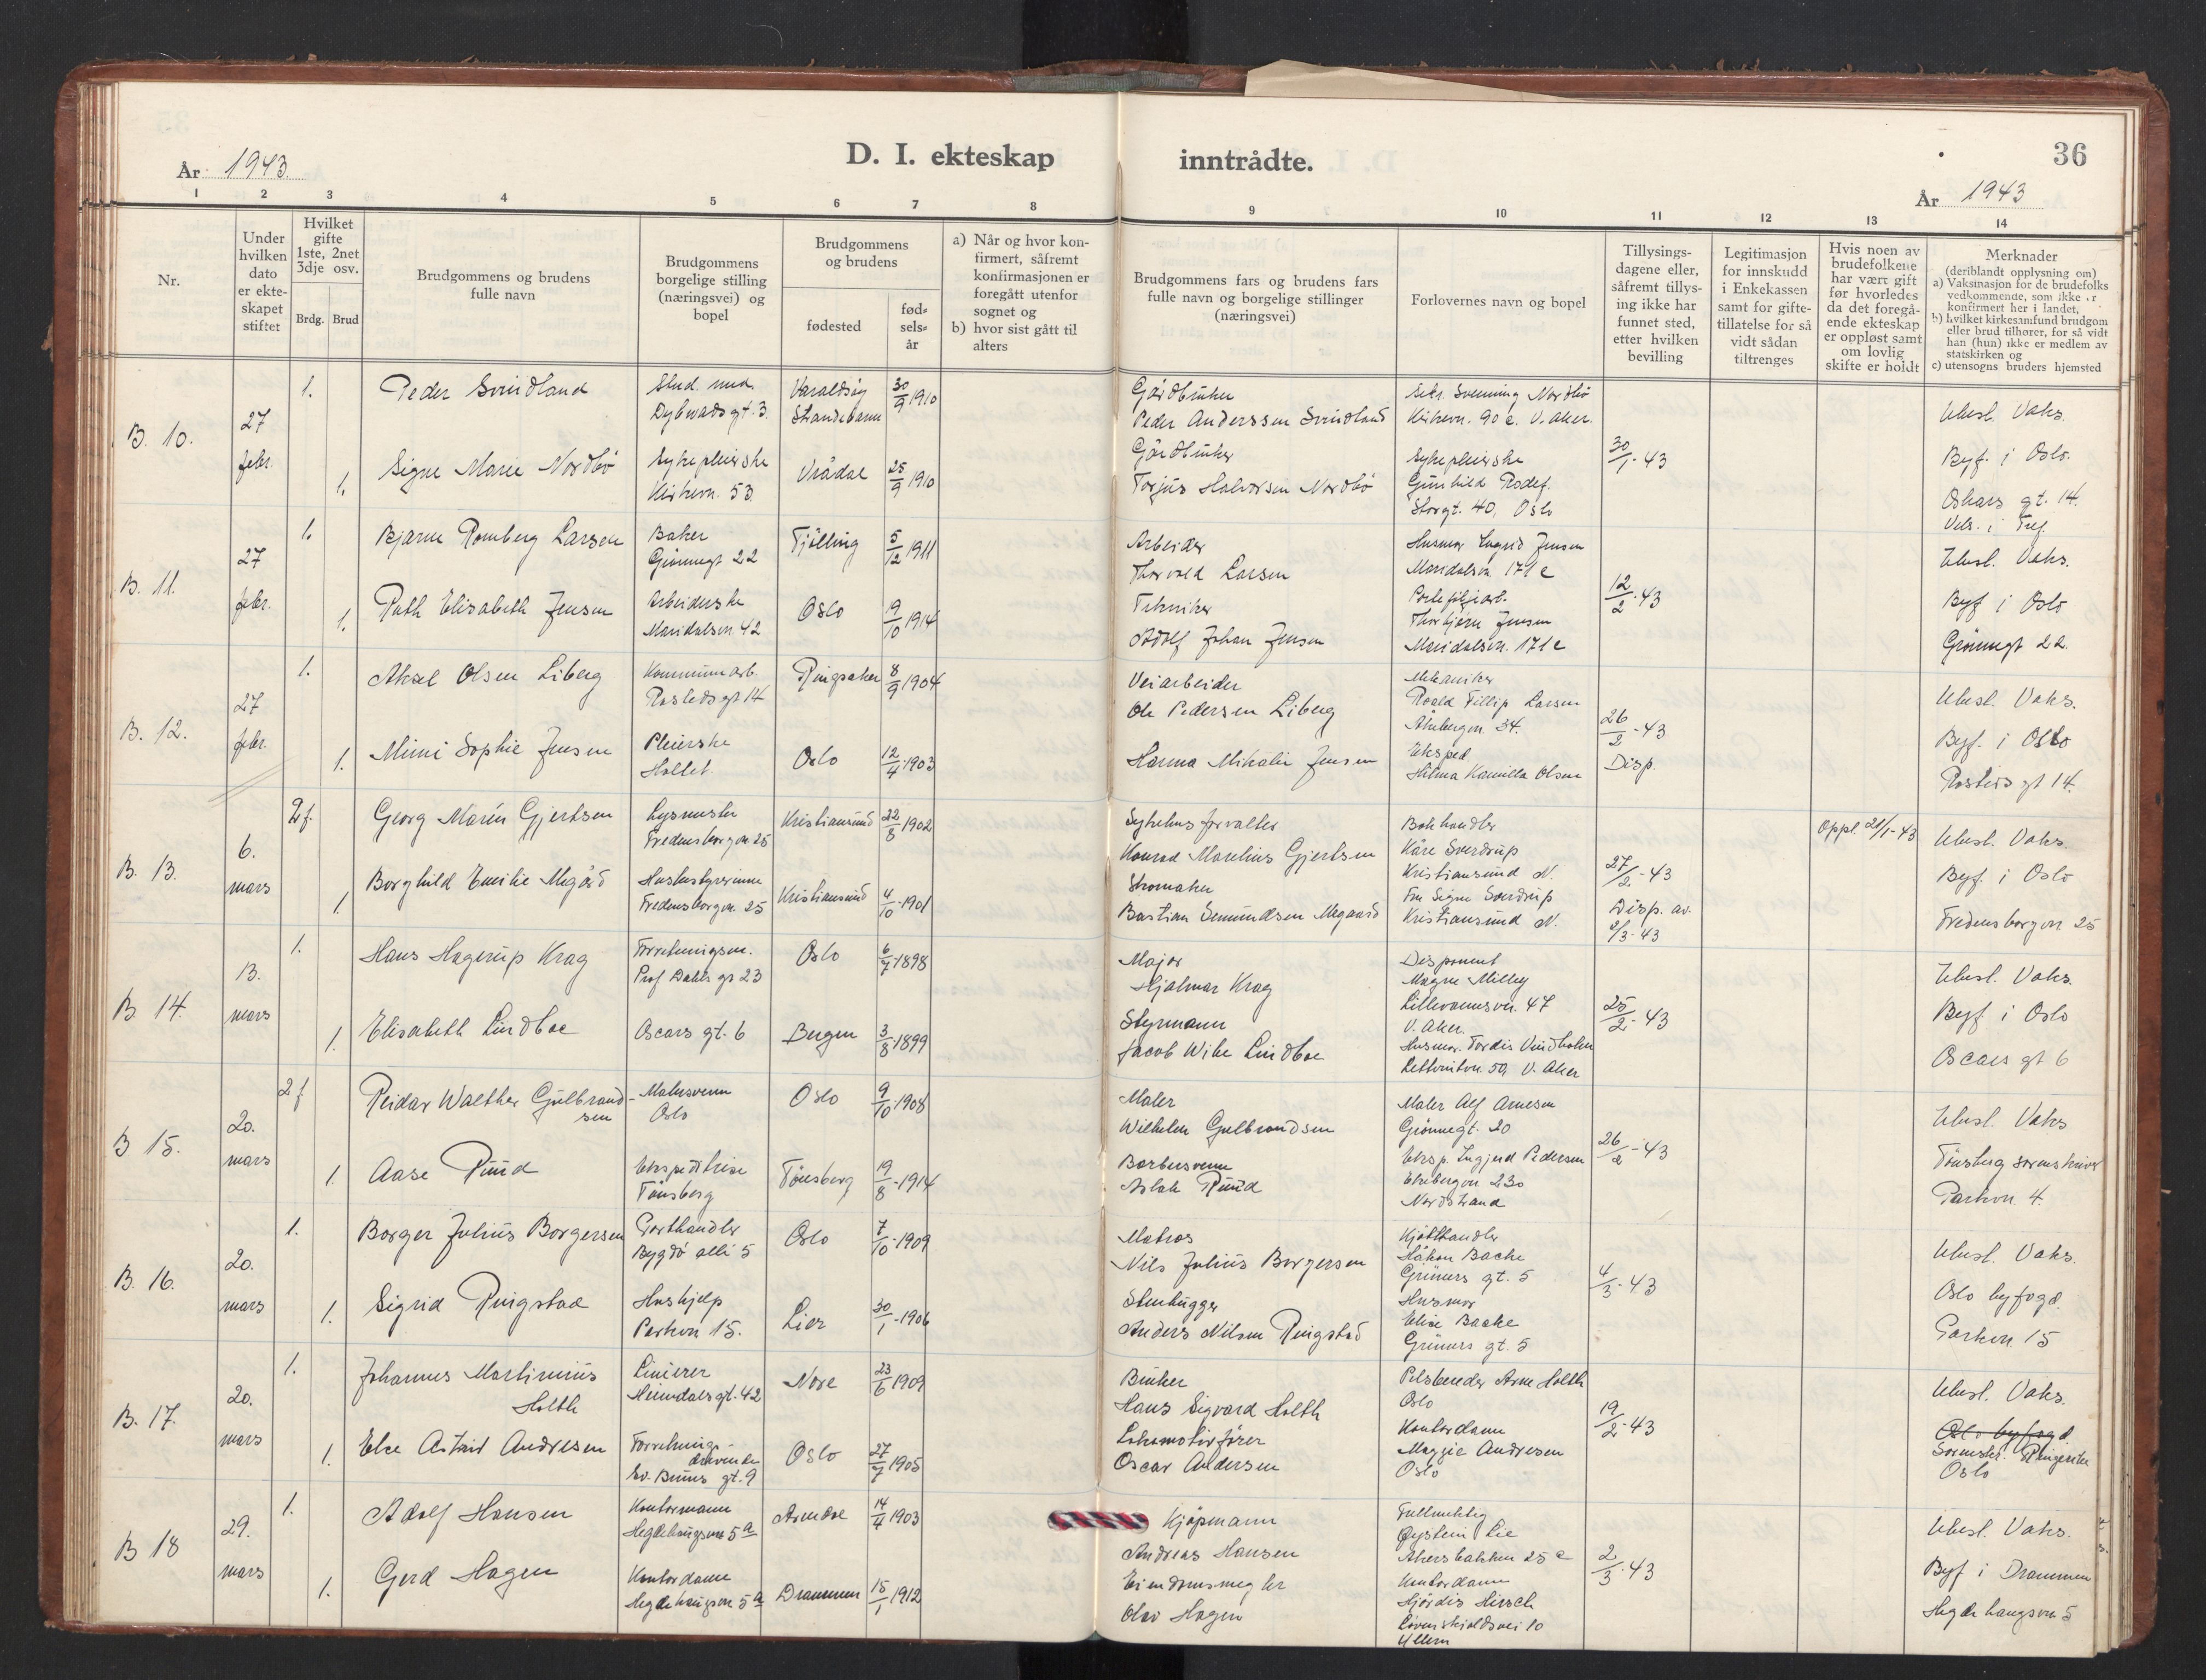 D. I. ekteskap inntrådte.
36
År 1943
År 1943
1 2 3 4 5 6 7 8 9 10 11 12 13 14
Nr.
Under hvilken dato er ekteskapet stiftet
Hvilket gifte 1ste, 2net 3dje osv.
Brdg. Brud
Brudgommens og brudens fulle navn
Brudgommens borgelige stilling (næringsvei) og bopel
Brudgommens og brudens
fødested
fødselsår
a) Når og hvor konfirmert, såfremt konfirmasjonen er foregått utenfor sognet og
b) hvor sist gått til alters
Brudgommens fars og brudens fars fulle navn og borgelige stillinger (næringsvei)
Forlovernes navn og bopel
Tillysingsdagene eller, såfremt tillysing ikke har funnet sted, etter hvilken bevilling
Legitimasjon for innskudd i Enkekassen samt for giftetillatelse for så vidt sådan tiltrenges
Hvis noen av brudefolkene har vært gift før hvorledes da det foregående ekteskap er oppløst samt om lovlig skifte er holdt
Merknader
(deriblandt opplysning om)
a) Vaksinasjon for de brudefolks vedkommende, som ikke er konfirmert her i landet,
b) hvilket kirkesamfund brudgom eller brud tilhører, for så vidt han (hun) ikke er medlem av statskirken og
c) utensogns bruders hjemsted
B. 10.
27 febr.
1. Peder Svindland
Stud. med.
Dybwadsgt. 3.
Varaldsøy
Strandebarm
30/9 1910
Gårdbruker
Peder Anderssen Svindland
Sekr. Svenning Nordbö
Kirkevn. 90 c. V. Aker.
1. Signe Marie Nordbö
Sykepleierske
Kirkevn. 53
Vrådal
25/9 1910
Gårdbruker
Torjus Halvorsen Nordbö
Sykepleierske
Gunhild
Storgt. 40, Oslo
30/1-43
Utest. Vaks.
Byf. i Oslo.
Oskars gt. 14.
B. 11.
27 febr.
1. Bjarne Romberg Larsen
Baker
Grönnegt 22
Tjölling
5/12 1911
Arbeider
Thorvald Larsen
Husmor Ingrid Jensen
Maridalsvn. 171 c
1. Ruth Elisabeth Jensen
Arbeiderske
Maridalsvn 42
Oslo
19/10 1914
Tekniker
Adolf Johan Jensen
Thorbjørn Jensen
Maridalsvn. 171 c
12/2-43
Utest. Vaks.
Byf i Oslo
Grönnegt 22.
B. 12.
27 febr.
1. Aksel Olsen Liberg
Kommunearb.
Rosteds gt 14
Ringsaker
8/9 1904
Veiarbeider
Ole Pedersen Liberg
Mekaniker
Roald Fillip Larsen
Åkebergvn. 34.
1. Mimi Sophie Jensen
Pleierske
Oslo
12/4-1903
Hanna Mikalie Jensen
Eksped.
Hilma Kamilla Olsen
26/2-43
Disp.
Utest. Vaks.
Byf. i Oslo
Rosteds gt 14.
B. 13.
6. mars
2f. Georg Marén Gjertsen
Lysmester
Fredensborgvn 25
Kristiansund
22/8 1902
Sykehusforvalter
Konrad Marelius Gjertsen
Bokhandler
Kåre Sverdrup
Kristiansund N.
1. Borghild Emilie Megård
Husbestyrerinne
Fredensborgvn. 25
Kristiansund
4/10-1901
Bastian Semundsen Megaard
Fru Signe Sverdrup
Kristiansund N.
27/2-43
Disp. av.
2/3-43
Oppl. 21/1-43
Utest. Vaks.
Byf. i Oslo
Fredensborgvn 25
B. 14.
13. mars
1. Hans Hagerup Krag
Forretningsm.
Prof Dahls gt 23
Oslo
6/7-1898
Major
Hjalmar Krag
Disponent
Magne Milley
Lillevannsvn. 47
V. Aker.
1. Elisabeth Lindboe
Oscars gt. 6
Bergen
3/8-1899
Styrmann
Jacob Wibe Lindboe
Husmor. Tordis Vindholm
V. Aker
25/2-43
Utest. Vaks.
Byf i Oslo
Oscars gt 6
B 15.
20. mars
2f Reidar Walther Gulbrandsen
Malersvenn
Oslo
Oslo
9/10 1908
Maler
Wilhelm Gulbrandsen
Maler Alf Arnesen
Grönnegt. 20
1. Aase Ruud
Ekspeditrise
Tönsberg
Tönsberg
19/8-1914
Barbersvenn
Aslak Ruud
Eksp. Ingjerd Pedersen
Ekebergvn 230
Nordstrand
26/2-43
Utest. Vaks
Tönsberg sorenskriver
Parkvn 4.
B. 16.
20. mars
1. Borger Julius Borgersen
Bygdö allé 5
Oslo
7/10-1909
Matros
Nils Julius Borgersen
Kjötthandler
Håkon Backe
Grüners gt. 5
1. Sigrid Ringstad
Hushjelp
Parkvn 15.
Lier
30/1-1906
Stenhugger
Anders Nilsen Ringstad
Husmor
Elise Backe
Grüners gt. 5
4/3-43
Utest. Vaks.
Oslo byfogd.
Parkvn 15
B. 17.
20. mars
1. Johannes Martinius Holth
Linierer
Heimdalsgt. 42
Nore
23/6 1909
Bruker
Hans Sigvard Holth
Pelsbereder Arne Holth
Oslo
1. Else Astrid Andresen
Forretningsdrivende
Sv. Bruns gt. 9
Oslo
27/7 1905
Lokomotivfører
Oscar Andersen
Kontordame
Maggie Andresen
Oslo
19/2-43
Utest. Vaks.
Oslo byfogd
Sorenskr. Ringerike
Oslo
B 18
29. mars
1. Adolf Hansen
Kontormann
Hegdehaugsvn 5a
Arendal
14/4 1903
Kjøpmann
Andreas Hansen
Fullmektig
Øystein Lie
Akersbakken 25 c
1. Gerd Hagen
Kontordame
Hegdehaugsvn 5a
Drammen
15/1 1912
Eiendomsmegler
Olav Hagen
Kontordame
Hjördis Hirsch
Løvenskioldsvei 10
Ullern
2/3-43
Utest. Vaks.
Byf i Drammen
Hegdehaugsvn 5